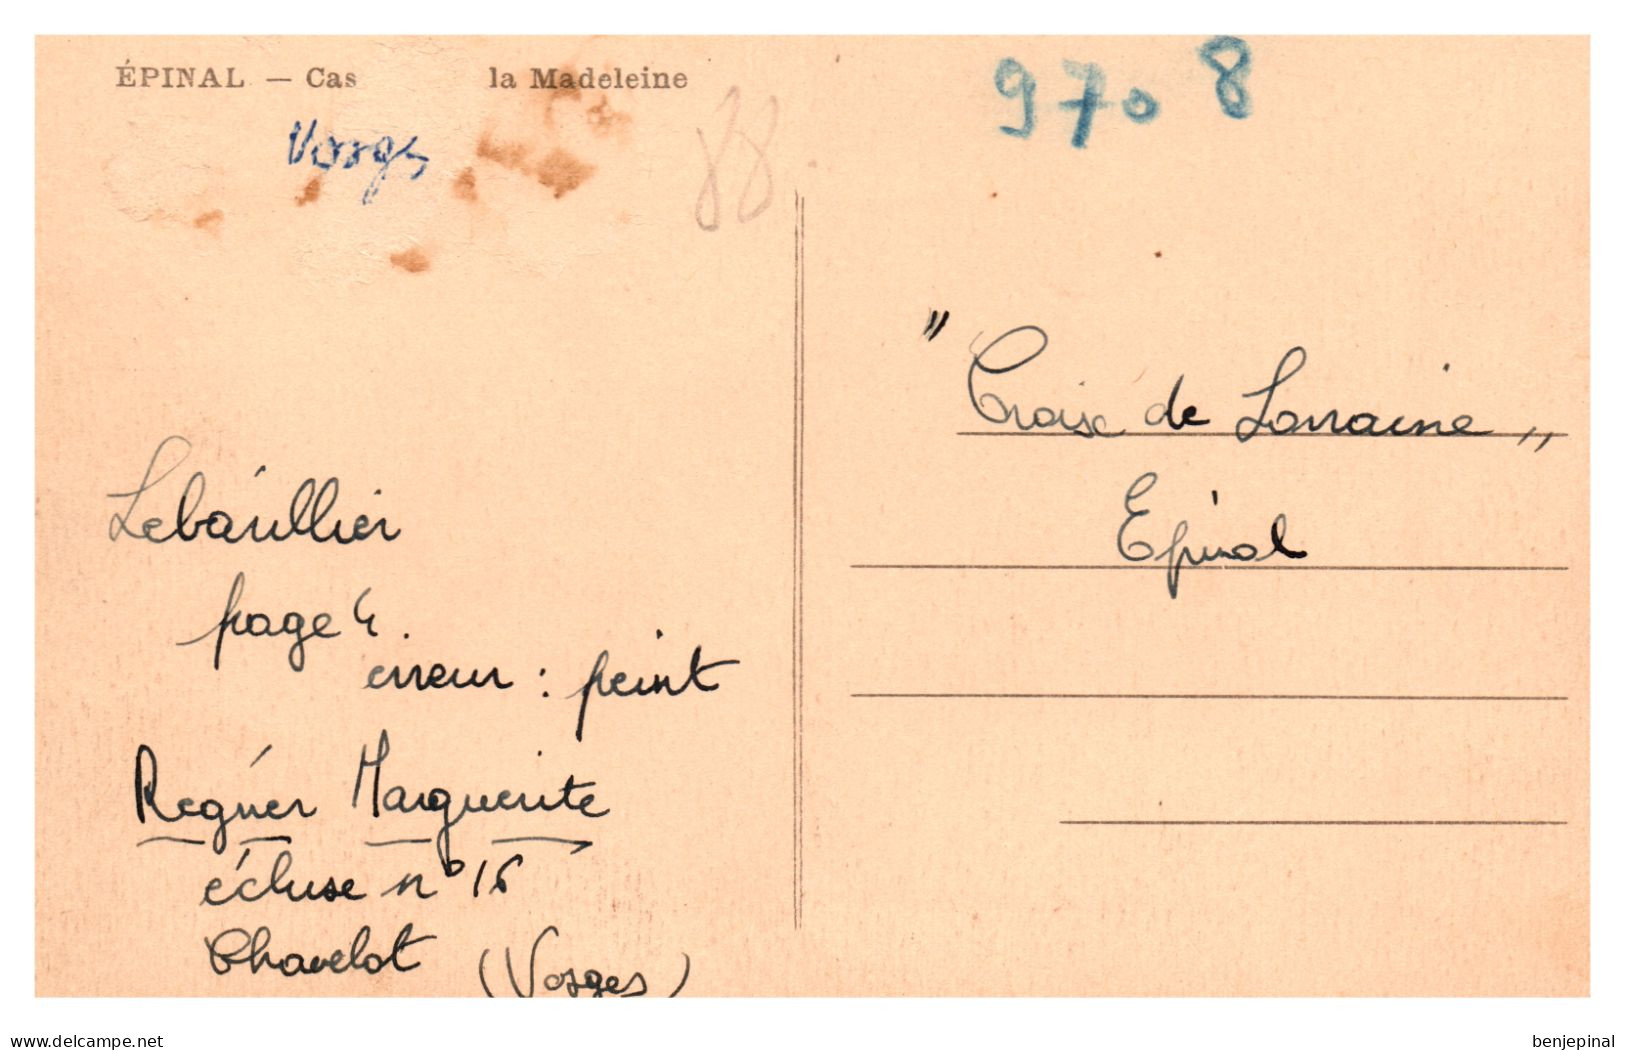 ÉPINAL — Cas la Madeleine
Vosges
88
9708
" Croix de Lorraine "
Epinal
Lebaullier
page 4.
erreur : peint
Regnier Marguerite
écluse n° 16
Chavelot (Vosges)
www.delcampe.net
benjepinal